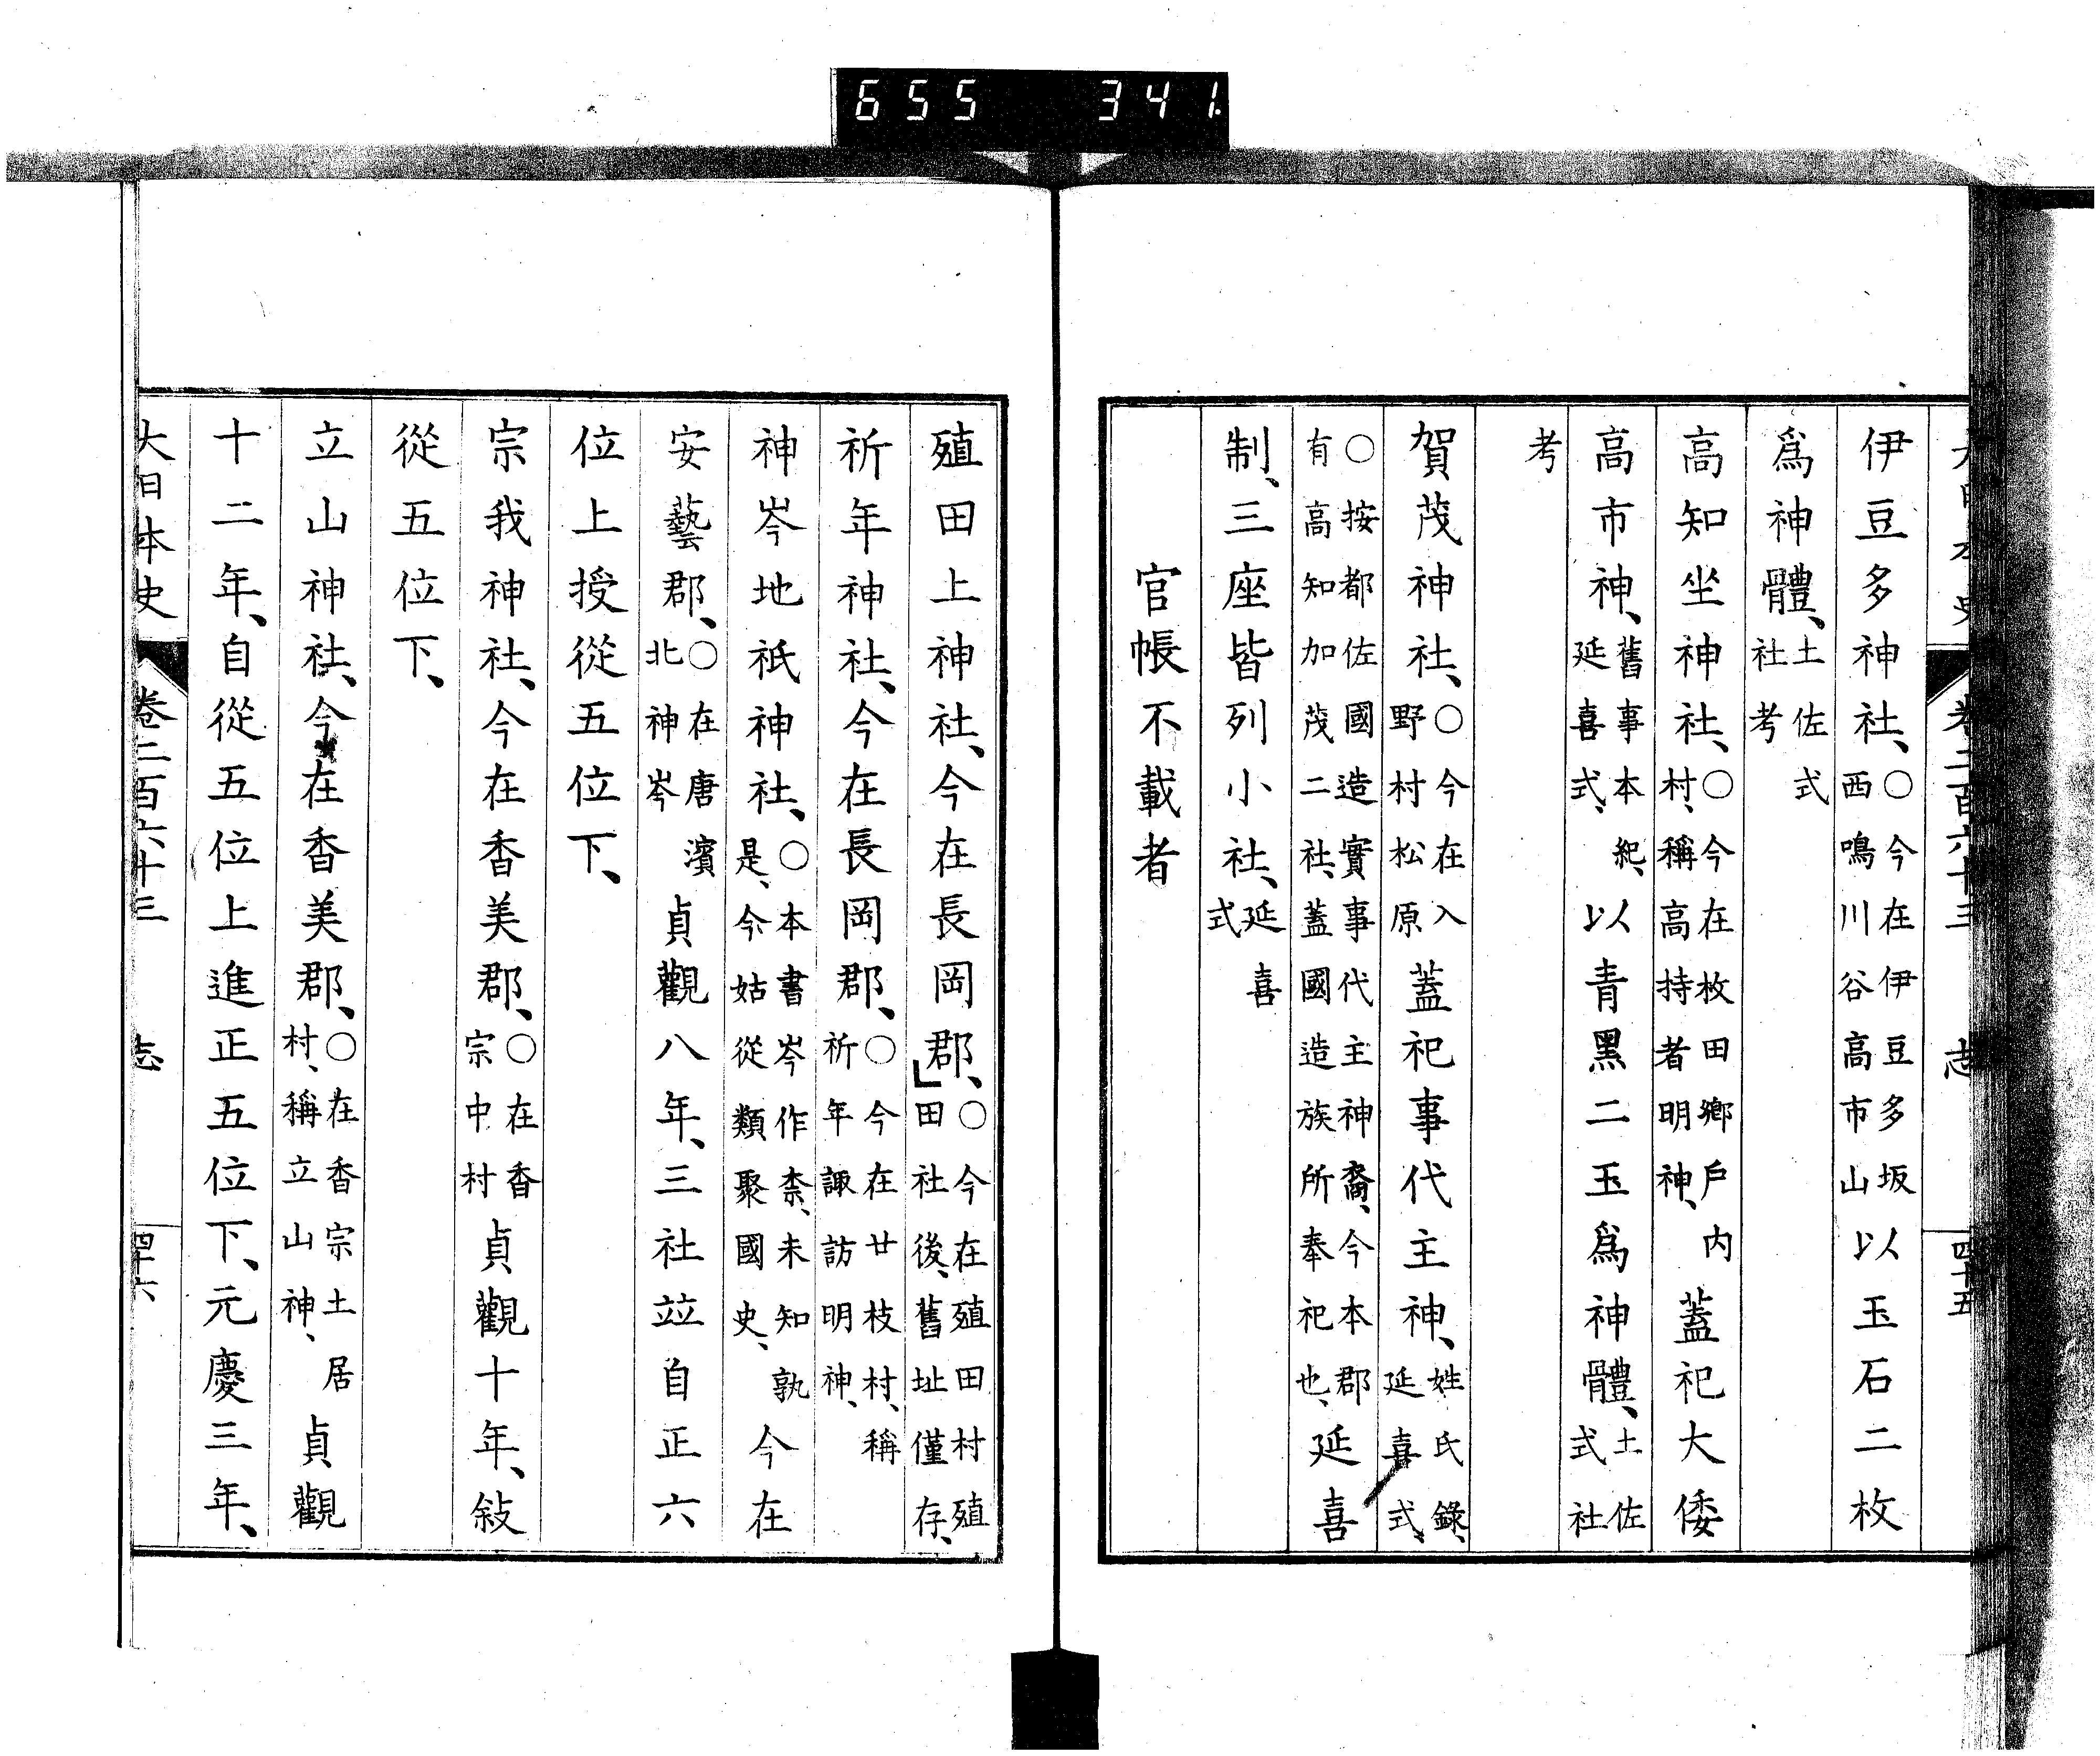 655 341.
大日本史 卷二百六十三 志 四十五
伊豆多神社、○今在伊豆多坂西鳴川谷高市山以玉石二枚
爲神體、土佐式社考
高知坐神社、○今在枚田鄉戶內村、稱高持者明神、蓋祀大倭
高市神、舊事本紀、延喜式、以青黑二玉爲神體、土佐式社
考
賀茂神社、○今在入野村松原蓋祀事代主神、姓氏錄、延喜式、
○按都佐國造實事代主神裔、今本郡有高知加茂二社、蓋國造族所奉祀也、延喜
制、三座皆列小社、延喜式
官帳不載者
殖田上神社、今在長岡郡、○今在殖田村殖田社後、舊址僅存、
祈年神社、今在長岡郡、○今在廿枝村、稱祈年諏訪明神、
神岑地祇神社、○本書岑作柰、未知孰是、今姑從類聚國史、今在
安藝郡、○在唐濱北神岑貞觀八年、三社竝自正六
位上授從五位下、
宗我神社、今在香美郡、○在香宗中村貞觀十年、敍
從五位下、
立山神社、今在香美郡、○在香宗土居村、稱立山神、貞觀
十二年、自從五位上進正五位下、元慶三年、
大日本史 卷二百六十三 志 四十六